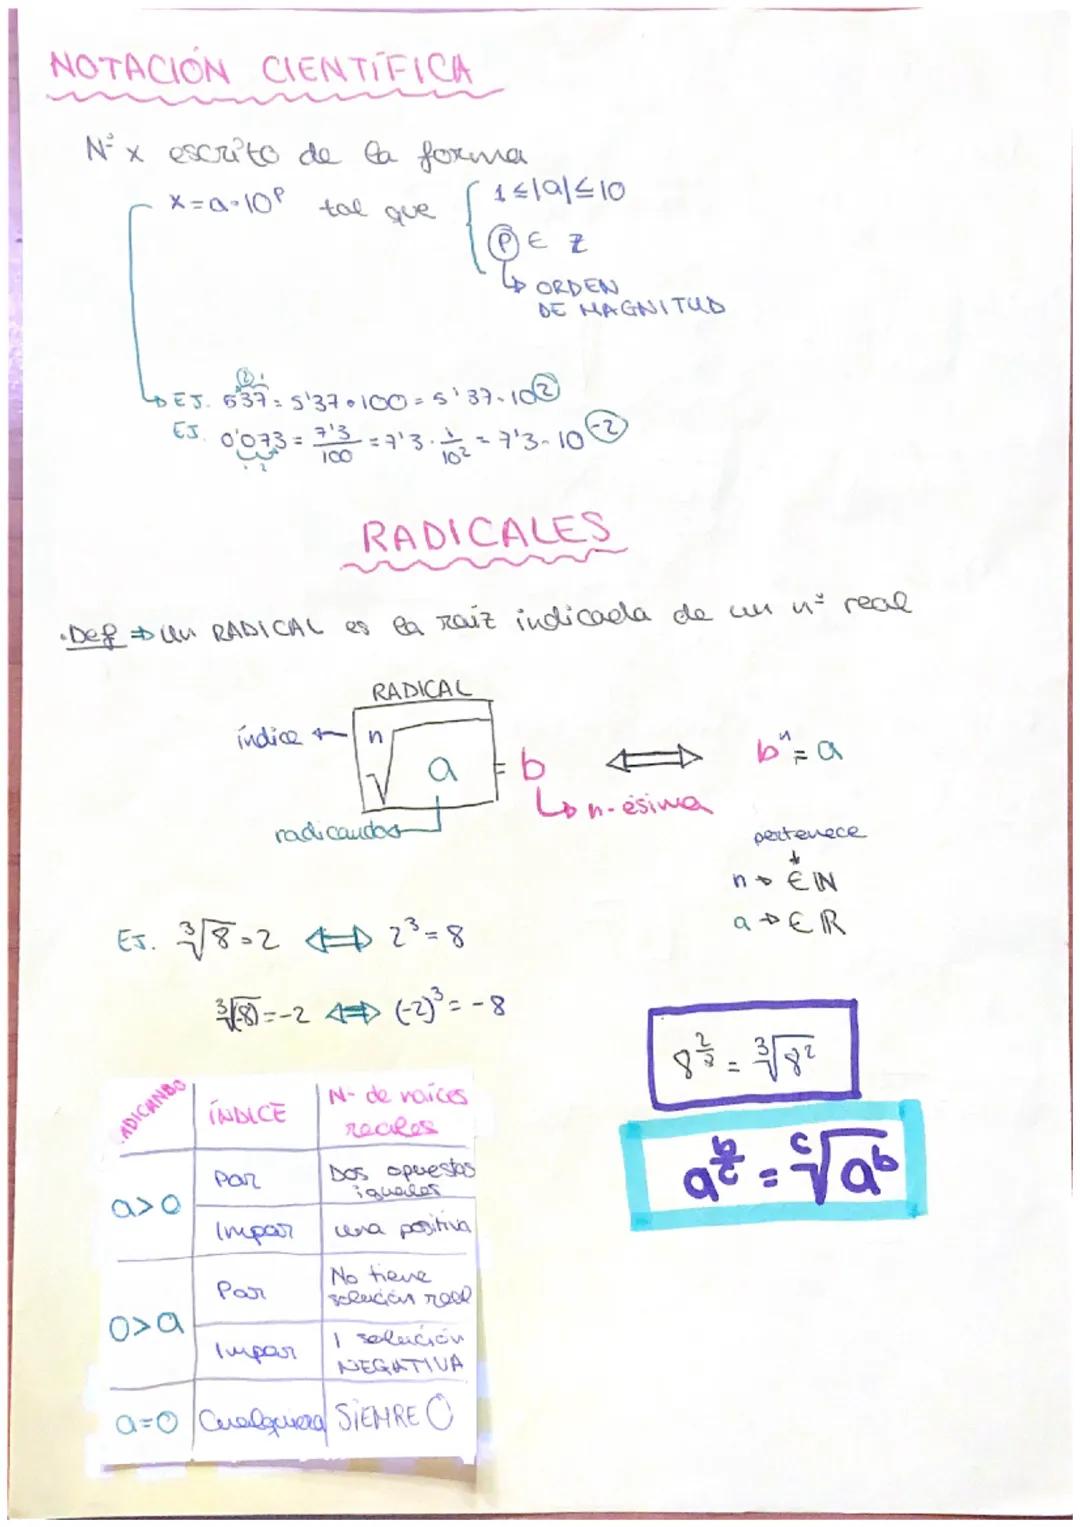 NOTACIÓN CIENTÍFICA
Nº x escrito de la forma
x=a·10ᵖ tal que { 1≤|a|≤10
P ∈ Z
↳ ORDEN
DE MAGNITUD
EJ. 537 = 5'37·100 = 5'37·10²
EJ. 0'073 = 7'3/100 = 7'3·1/10² = 7'3·10⁻²
RADICALES
·Def ⇒ Un RADICAL es la raiz indicada de un nº real
RADICAL
índice ← ⁿ√a = b ⟺ bⁿ = a
↳ n-ésima
radicando
pertenece
n → ∈ N
a → ∈ R
EJ. ³√8 = 2 ⟺ 2³ = 8
³√(-8) = -2 ⟺ (-2)³ = -8
8^(2/3) = ³√8²
a^(b/c) = ᶜ√aᵇ
ADICANDO ÍNDICE Nº de raíces
reales
a>0 Par Dos opuestas
iguales
Impar una positiva
0>a Par No tiene
solución real
Impar 1 solución
NEGATIVA
a=0 Cualquiera SIEMRE 0